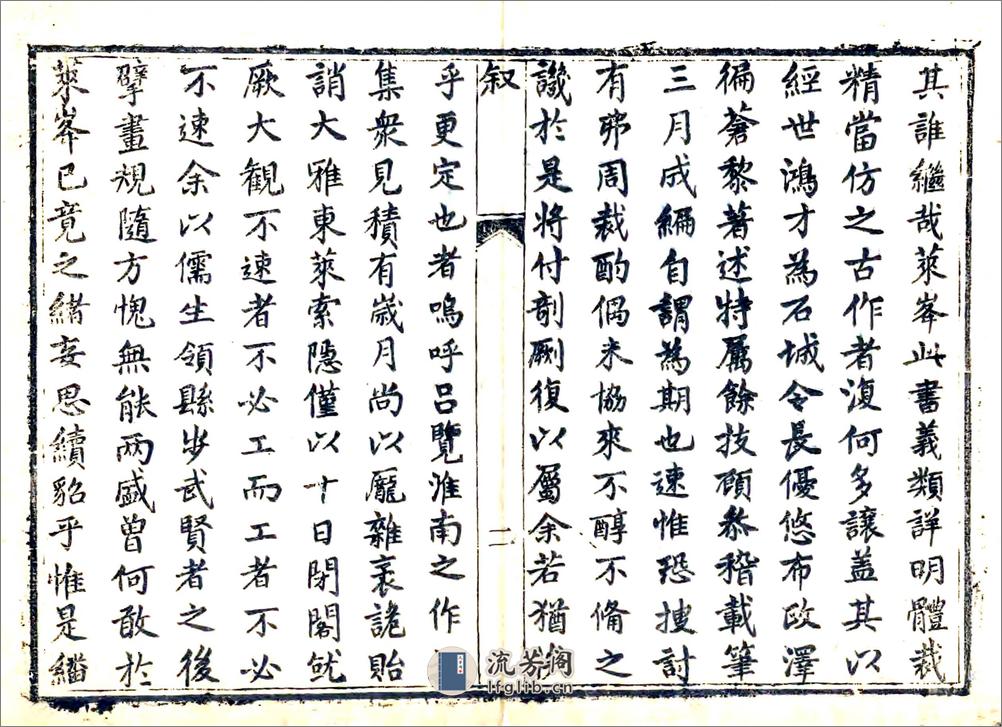 其誰繼哉萊峯此書義類詳明體裁
精當仿之古作者復何多讓盖其以
經世鴻才為石城令長優悠布政澤
徧蒼黎著述特属餘技顧叅稽載筆
三月成編自謂為期也速惟恐搜討
有弗周裁酌偶未協來不醇不俻之
譏於是將付剞劂復以屬余若猶
叙
二
乎更定也者嗚呼吕覽淮南之作
集衆見積有歲月尚以龎雜衺詭貽
誚大雅東萊索隱僅以十日閉閣就
厥大觀不速者不必工而工者不必
不速余以儒生領縣步武賢者之後
擘畫規隨方愧無能兩盛曽何敢於
萊峯已竟之緒妄思續貂乎惟是繼
流芳阁
lfglib.cn